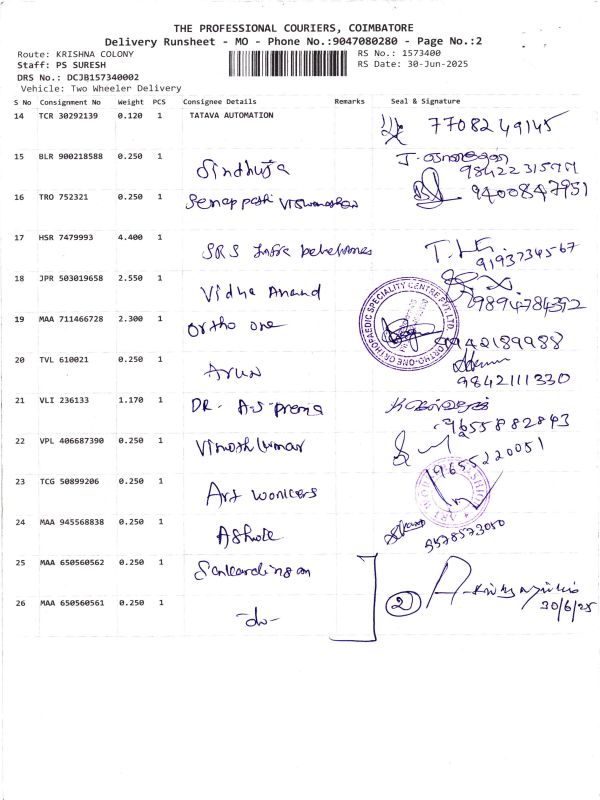 THE PROFESSIONAL COURIERS, COIMBATORE
Delivery Runsheet - MO - Phone No.:9047080280 - Page No.:2
Route: KRISHNA COLONY
RS No.: 1573400
Staff: PS SURESH
RS Date: 30-Jun-2025
DRS No.: DCJB157340002
Vehicle: Two Wheeler Delivery
S No Consignment No Weight PCS Consignee Details Remarks Seal & Signature
14 TCR 30292139 0.120 1 TATAVA AUTOMATION 7708249145
15 BLR 900218588 0.250 1 Sindhuja
16 TRO 752321 0.250 1 9400847951
17 HSR 7479993 4.400 1 SRS Infra 9193734567
18 JPR 503019658 2.550 1 Vidya Anand 9894784392
19 MAA 711466728 2.300 1 Ortho one
ORTHO-ONE ORTHOPAEDIC SPECIALITY CENTRE PVT.LTD.
20 TVL 610021 0.250 1 Arun 9842111330
21 VLI 236133 1.170 1 DR. A.S Prema 9655882843
22 VPL 406687390 0.250 1 Vinothkumar 9655220051
23 TCG 50899206 0.250 1 Art workers
24 MAA 945568838 0.250 1 Ashok 9578573050
25 MAA 650560562 0.250 1
26 MAA 650560561 0.250 1 -do- 2 30/6/25